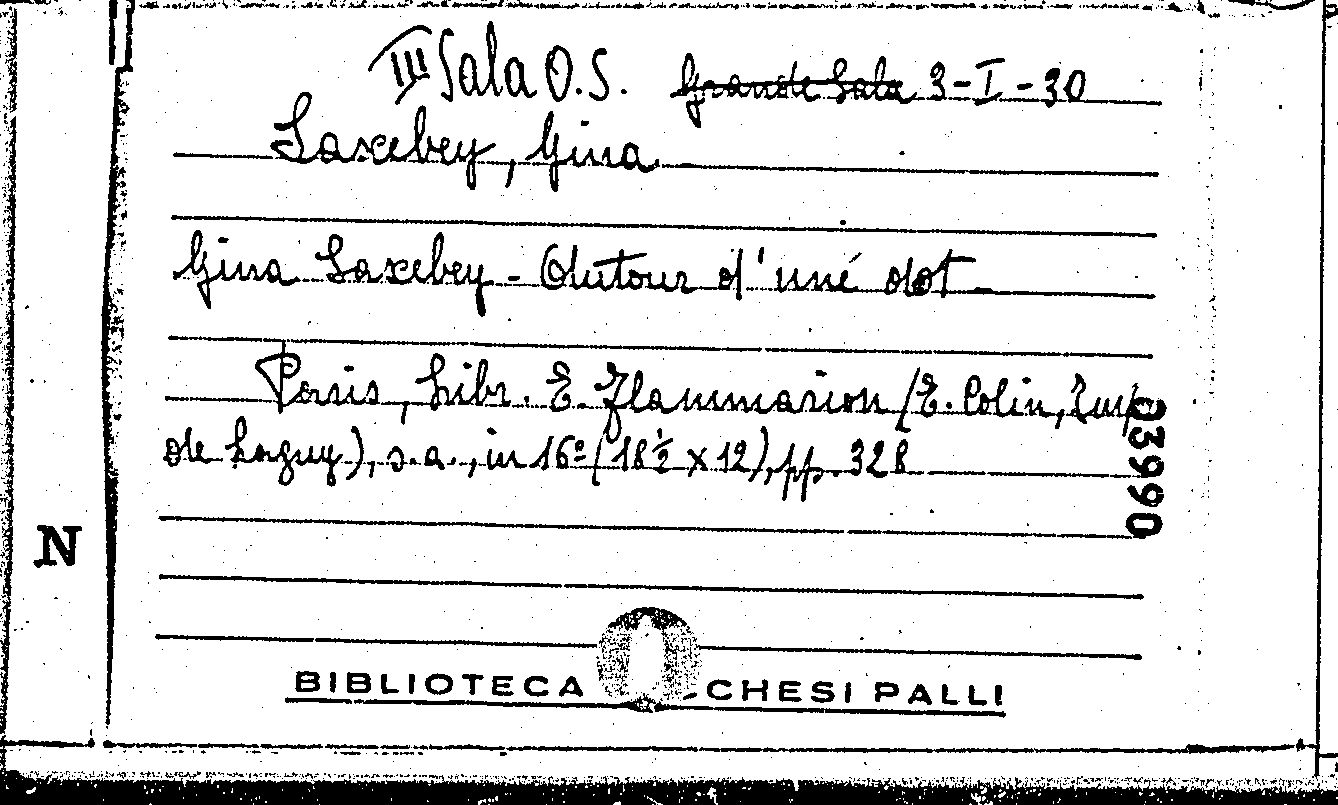 III Sala O.S. Grande Sala 3-I-30
Saxebey, Gina
Gina Saxebey - Autour d'uné dot -
Paris, Libr. E. Flammarion (E. Colin, Imp
de Lagny), s.a., in 16º (18½ x 12), pp. 328
03990
N
BIBLIOTECA CHESI PALLI